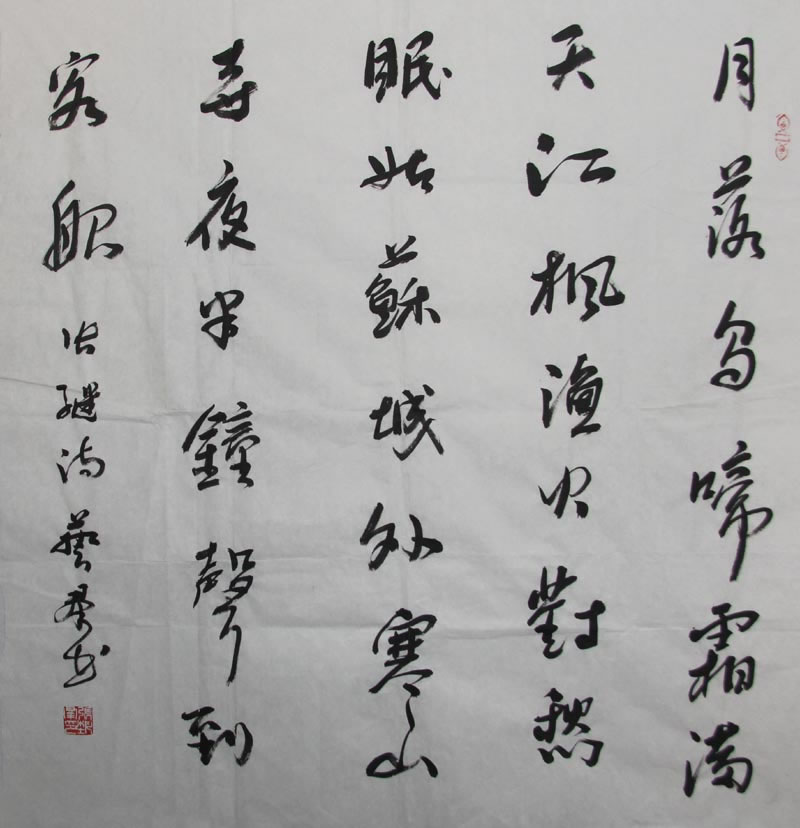 月落烏啼霜滿
天江楓漁火對愁
眠姑蘇城外寒山
寺夜半鐘聲到
客船 張繼詩藝軍書